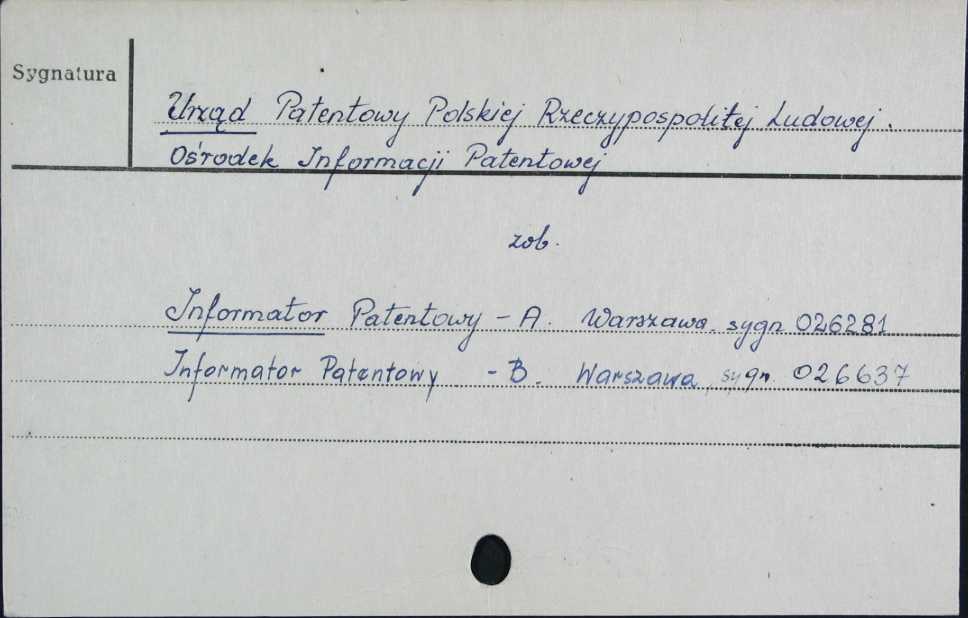 Sygnatura
Urząd Patentowy Polskiej Rzeczypospolitej Ludowej.
Ośrodek Informacji Patentowej
zob.
Informator Patentowy - A. Warszawa. sygn. 026281
Informator Patentowy - B. Warszawa, sygn. 026637